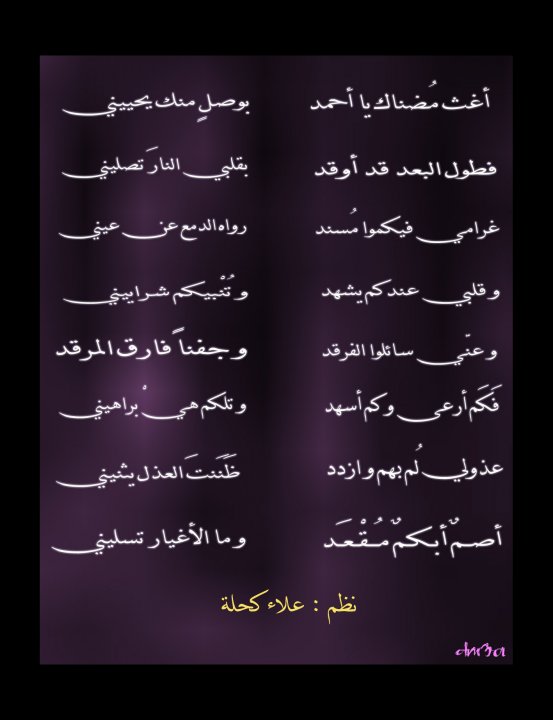 أغث مُضناك يا أحمد بوصلٍ منك يحييني
فطول البعد قد أوقد بقلبي النارَ تصليني
غرامي فيكموا مُسند رواه الدمع عن عيني
وقلبي عندكم يشهد وتُنْبيكم شراييني
وعنّي سائلوا الفرقد وجفناً فارق المرقد
فَكَم أرعى وكم أسهد وتلكم هيْ براهيني
عذولي لُم بهم وازدد ظَنَنتَ العذل يثنيني
أصمٌ أبكمٌ مُقْعَد وما الأغيار تسليني
نظم : علاء كحلة